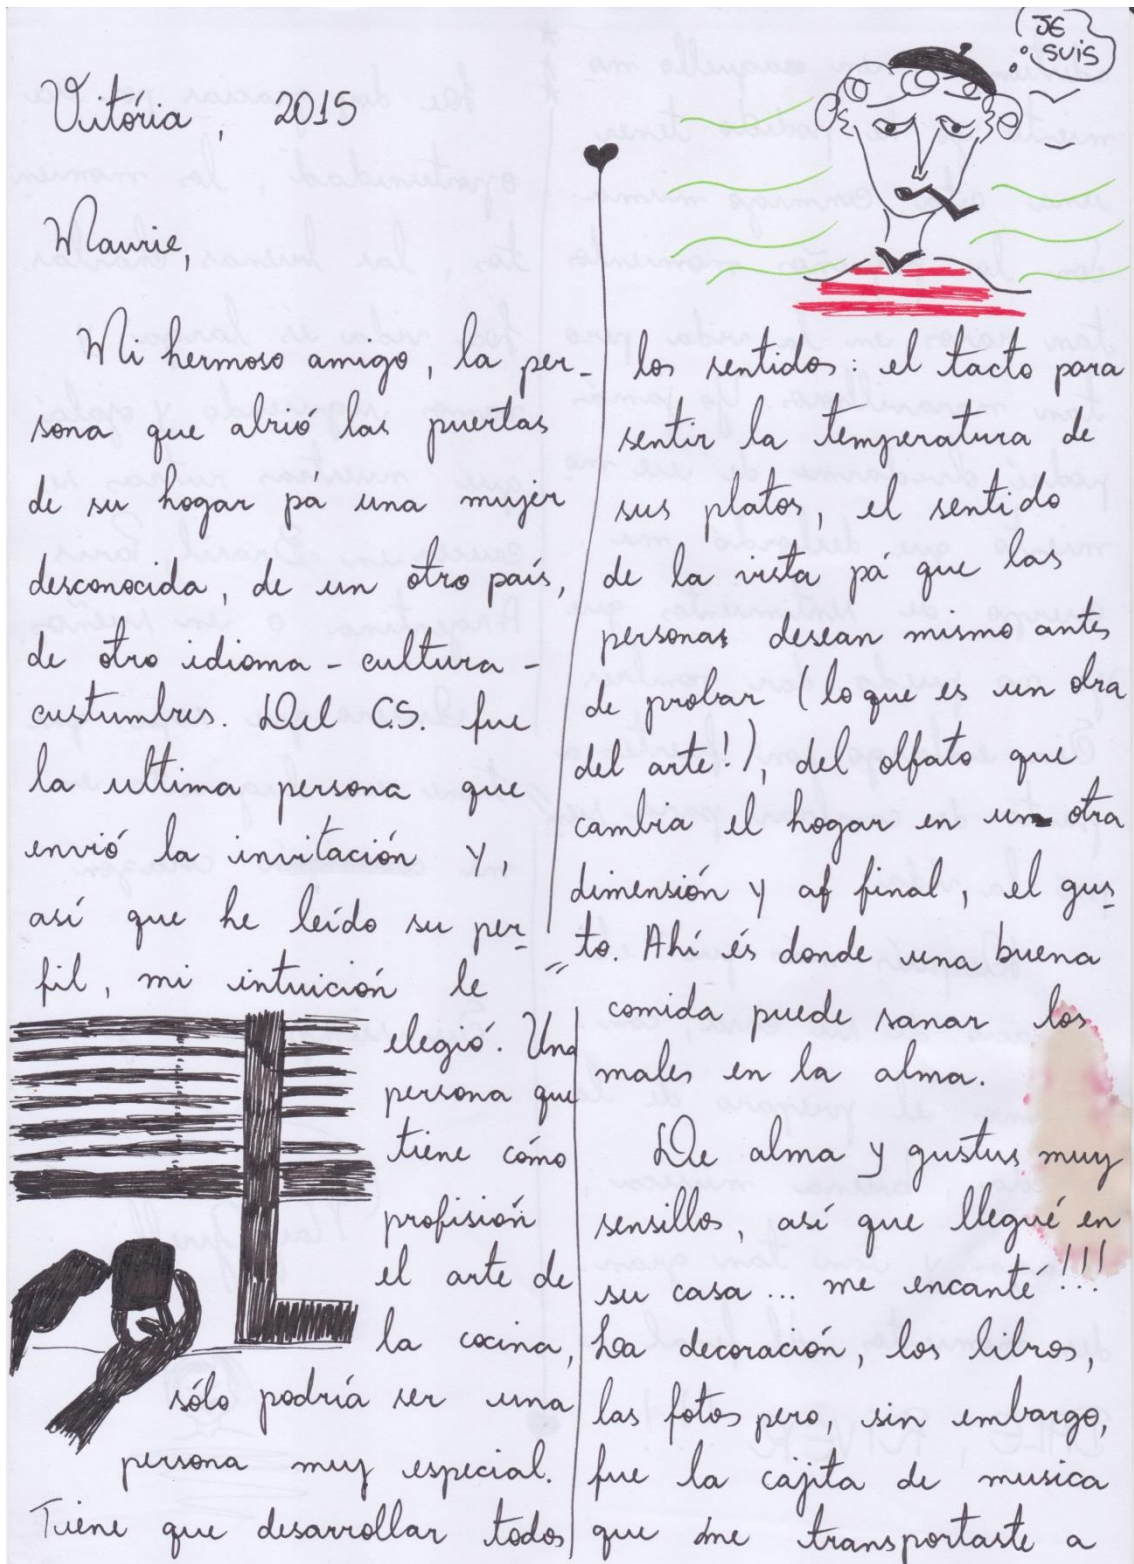 JE
SUIS
Vitória, 2015
Maurie,
Mi hermoso amigo, la per-
sona que abrió las puertas
de su hogar pá una mujer
desconocida, de un otro país,
de otro idioma - cultura -
custumbres. Del C.S. fue
la ultima persona que
envió la invitación y,
así que he leído su per-
fil, mi intuición le
elegió. Una
persona que
tiene cómo
profisión
el arte de
la cocina,
sólo podría ser una
persona muy especial.
Tiene que desarrollar todos
los sentidos: el tacto para
sentir la temperatura de
sus platos, el sentido
de la vista pá que las
personas desean mismo antes
de probar (lo que es un obra
del arte!), del olfato que
cambia el hogar en un otra
dimensión y al final, el gus-
to. Ahí és donde una buena
comida puede sanar los
males en la alma.
De alma y gustus muy
sensillos, así que llegué en
su casa... me encanté!!!
La decoración, los libros,
las fotos pero, sin embargo,
fue la cajita de musica
que me transportaste a